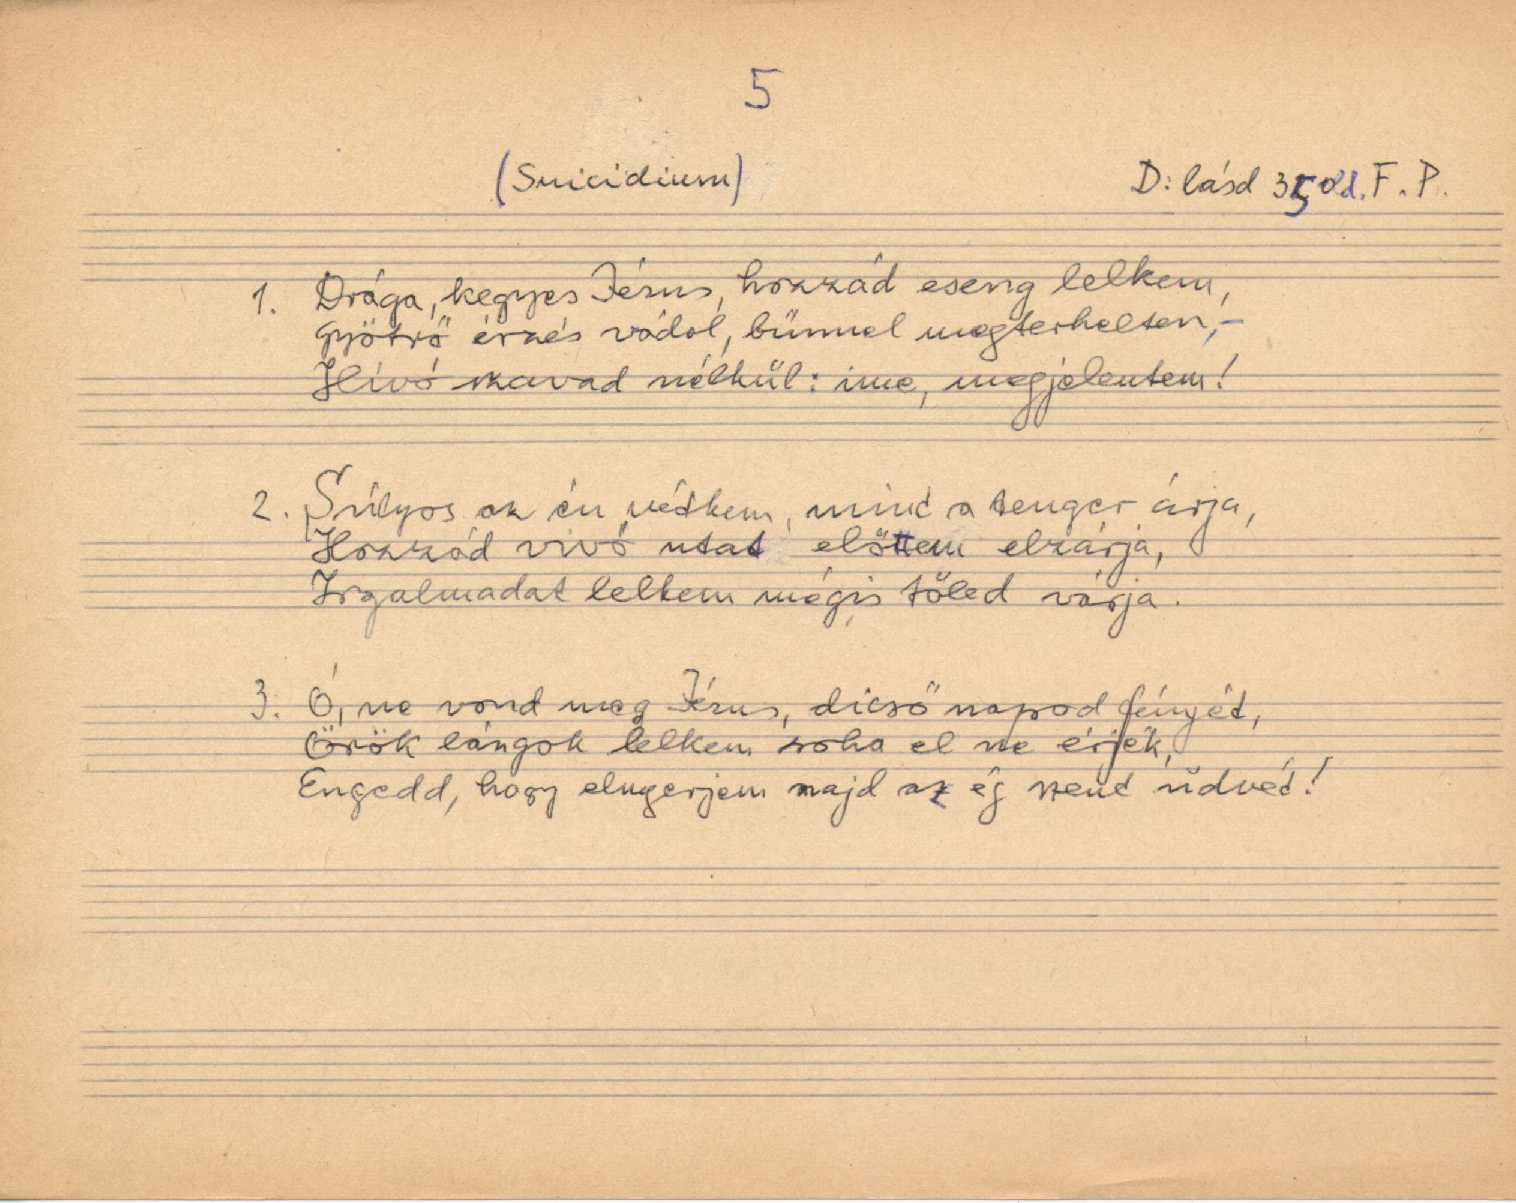 5
(Suicidium)
D: lásd 35 old. F. P.
1. Drága, kegyes Jézus, hozzád eseng lelkem,
Gyötrő érzés vádol, bűnnel megterhelten,-
Hívó szavad nélkül: ime, megjelentem!
2. Súlyos az én vétkem, mint a tenger árja,
Hozzád vivő utat előttem elzárja,
Irgalmadat lelkem mégis tőled várja.
3. Ó, ne vond meg Jézus, dicső napod fényét,
Örök lángok lelkem soha el ne érjék,
Engedd, hogy elnyerjem majd az ég szent üdvét!